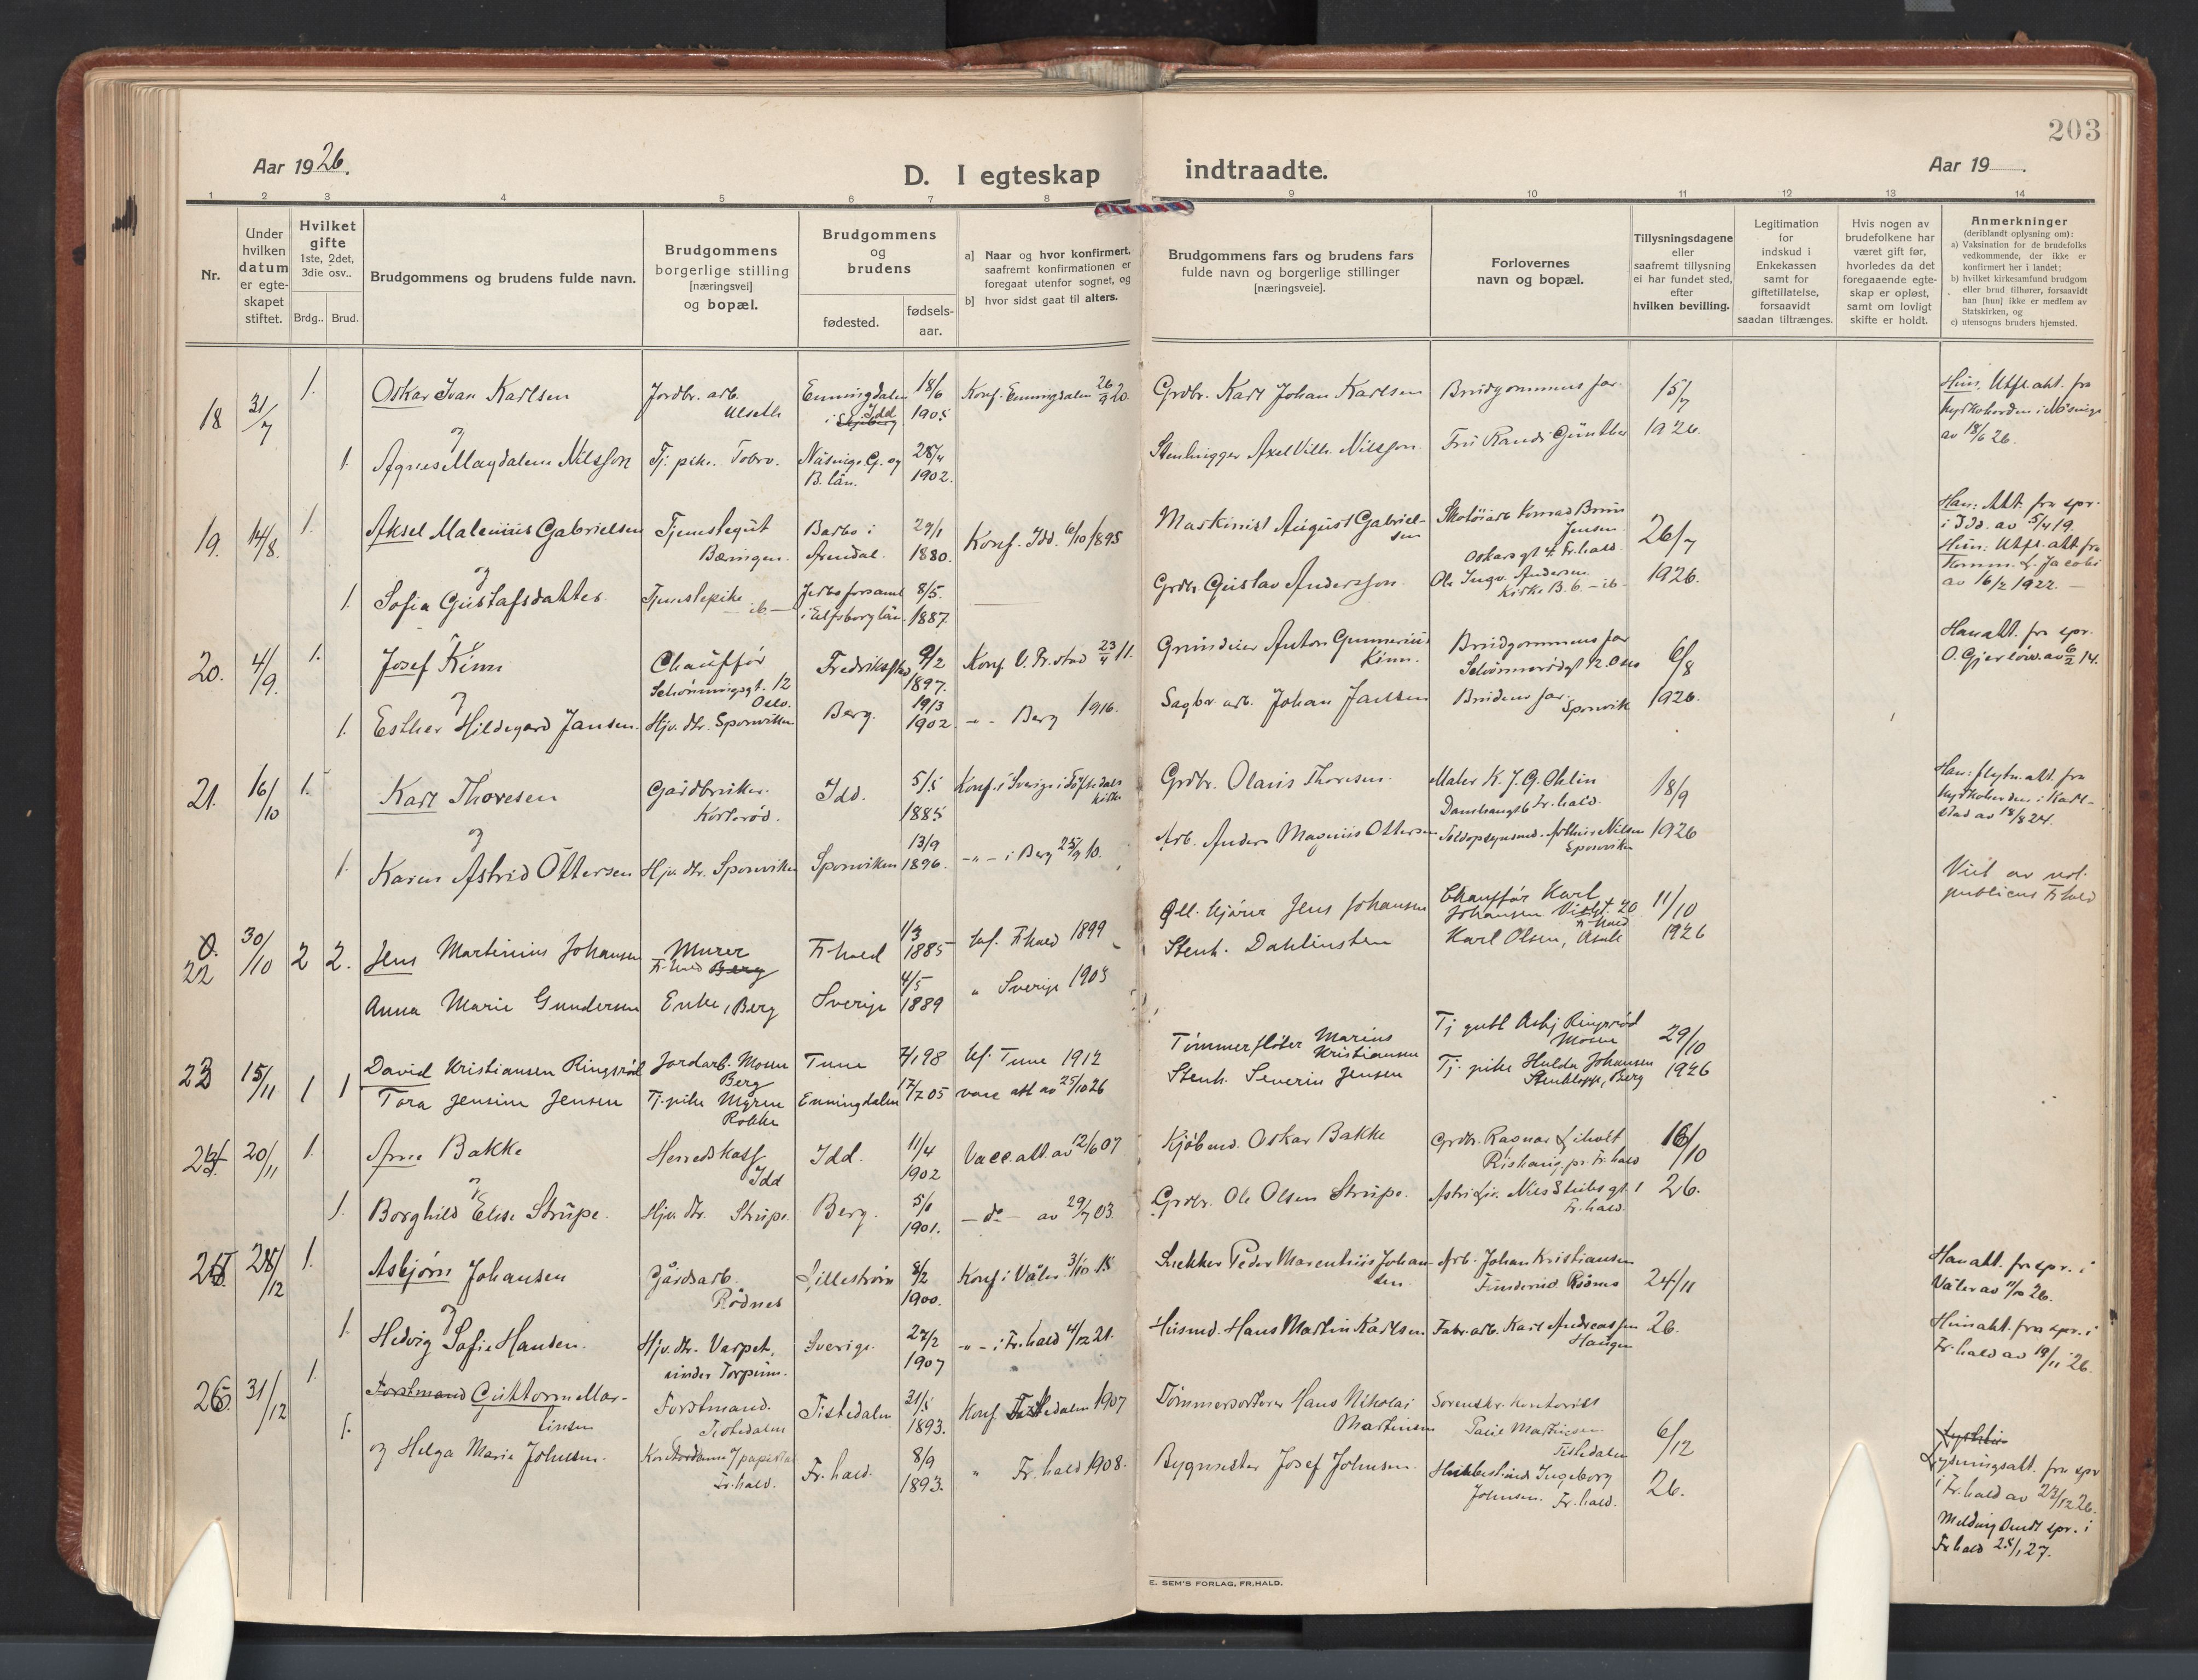 203
Aar 1926.
D. I egteskap indtraadte.
Aar 19 .
1 2 3 4 5 6 7 8 9 10 11 12 13 14
Nr.
Under hvilken datum er egteskapet stiftet.
Hvilket gifte 1ste, 2det, 3die osv..
Brdg.. Brud.
Brudgommens og brudens fulde navn.
Brudgommens borgerlige stilling [næringsvei] og bopæl.
Brudgommens og brudens
fødested.
fødsels-aar.
a] Naar og hvor konfirmert, saafremt konfirmationen er foregaat utenfor sognet, og
b] hvor sidst gaat til alters.
Brudgommens fars og brudens fars fulde navn og borgerlige stillinger [næringsveie].
Forlovernes navn og bopæl.
Tillysningsdagene eller saafremt tillysning ei har fundet sted, efter hvilken bevilling.
Legitimation for indskud i Enkekassen samt for giftetillatelse, forsaavidt saadan tiltrænges.
Hvis nogen av brudefolkene har været gift før, hvorledes da det foregaaende egteskap er opløst, samt om lovligt skifte er holdt.
Anmerkninger (deriblandt oplysning om):
a) Vaksination for de brudefolks vedkommende, der ikke er konfirmert her i landet;
b) hvilket kirkesamfund brudgom eller brud tilhører, forsaavidt han [hun] ikke er medlem av Statskirken, og
c) utensogns bruders hjemsted.
18 31/7 1. Oskar Ivar Karlsen Jordbr. arb. Ulseth Enningdalen i Idd 18/6 1905 Konf. Enningdalen 26/9 20. Grdbr. Karl Johan Karlsen Brudgommens far 15/7 1926.
Hun: Utfl. akt. fra kyrkoherden i Näsinge av 18/6 26.
og
1. Agnes Magdalena Nilsson Tj. pike. Näsinge G. og B. län. 28/4 1902. Stenhugger Axel Vilh. Nilsson Fru Randi Günther
19. 14/8. 1. Aksel Malenius Gabrielsen Tjenestegut Bæringen. Barbo i Arendal. 29/1 1880. Konf. Idd. 6/10 1895 Maskinist August Gabrielsen Skotøiarb Konrad Brun Jensen Oskarsgt 4 Fr.hald 26/7 1926.
Han: Akt. fra spr. i Idd. av 5/4 19.
Hun: Utfl. akt fra
av 16/2 1922. —
og
1. Sofia Gustafsdatter Tjenestepike — ib — i Elfsborg län. 8/5. 1887. Grdbr. Gustav Andersson Ole Ingv. Andersen Kirke B. 6. – ib –
20. 4/9. 1. Josef Kinn Chauffør Schønningsgt. 12 Oslo. Fredrikstad 9/2 1897. Konf. V. Fr.stad 23/4 11. Anton Gunnerius Kinn. Brudgommens far 12 Oslo 6/8 1926.
Han akt. fra spr.
og
1. Esther Hildegard Jansen. Hjv. dtr. Sponviken Berg. 19/3 1902. – " – Berg 1916. Sagbr arb. Johan Jansen Brudens far. Sponvik
21. 16/10 1. Karl Thoresen Gårdbruker. Kortrød. Idd. 5/5 1885 Konf. i Sverige i kirke Grdbr. Olaus Thoresen. Maler K. J. G. Ohlin Fr.hald. 18/9 1926
Han: flytn. akt. fra kyrkoherden i Karlstad av 18/8 24.
og
1. Karen Astrid Ottersen Hjv. dtr. Sponviken Sponviken 13/9 1896. – " – i Berg 25/9 10. Arb. Anders Magnus Ottersen Toldopsynsmd. Arthur Nilsen Sponviken
22 30/10 2 2. Jens Martinius Johansen Murer Fr.hald Berg Fr.hald 1/3 1885 kf. Fr.hald 1899 Jens Johansen Chauffør Karl Johansen 20 Fr.hald 11/10 1926
Viet av not. publicus Fr.hald
Anna Marie Gundersen Enke, Berg Sverige 4/5 1889 " Sverige 1905 Stenh. Dahlinsten Karl Olsen, Asak
23 15/11 1 1 David Kristiansen Ringsrød Jordarb. Mosen Berg Tune 98 kf. Tune 1912 Tømmerfløter Marius Kristiansen Tj. gutt Asbj Ringsrød Mosen 29/10 1926
Tora Jensine Jensen Tj. pike Myren Rokke Enningdalen 17/7 05 vacc att av 25/10 26 Stenh. Severin Jensen Tj. pike Hulda Johansen Stenklopp, Berg
24. 20/11 1. Arne Bakke Herredskass Idd Idd. 11/4 1902 Vacc. att. av 12/6 07 Kjøbmd. Oskar Bakke Grdbr. Ragnar Liholt Fr.hald 16/10 26.
og
1. Borghild Elise Strupe. Hjv. dtr. Strupe. Berg. 5/6 1901. – do – av 29/7 03. Grdbr. Ole Olsen Strupe. Nils Stubs gt. 1 Fr.hald.
25. 28/12 1. Asbjørn Johansen Gårdsarb. Rødnes Lillestrøm 8/2 1900. Konf i Våler 3/10 15 Snekker Peder Marentius Johansen Arb. Johan Kristiansen 24/11 26.
Han akt. fra spr. i Våler av 11/10 26.
og
1. Hedvig Sofie Hansen. Hjv. dtr. Varpet, under Torpum. Sverige. 27/2 1907 – " – i Fr.hald 4/12 21. Husmd. Hans Martin Karlsen Fabr. arb. Karl Andreassen Haugen
Hun akt. fra spr. i Fr.hald av 19/11 26.
26. 31/12 1. Forstmand Guttorm Martinsen Forstmand. Tistedalen Tistedalen 31/5 1893. Konf Tistedalen 1907 Tømmersorterer Hans Nikolai Martinsen Sorenskr. kontorist Martinsen Tistedalen 6/12 26.
1. og Helga Marie Johnsen. Kontordame Fr.hald. Fr.hald. 8/9 1893. " Fr.hald 1908. Bygmester Josef Johnsen. Ingeborg Johnsen. Fr.hald.
Lysningsatt. fra spr i Fr.hald av 27/12 26.
Melding sendt spr. i Fr.hald 25/1 27.
E. SEM'S FORLAG, FR.HALD.